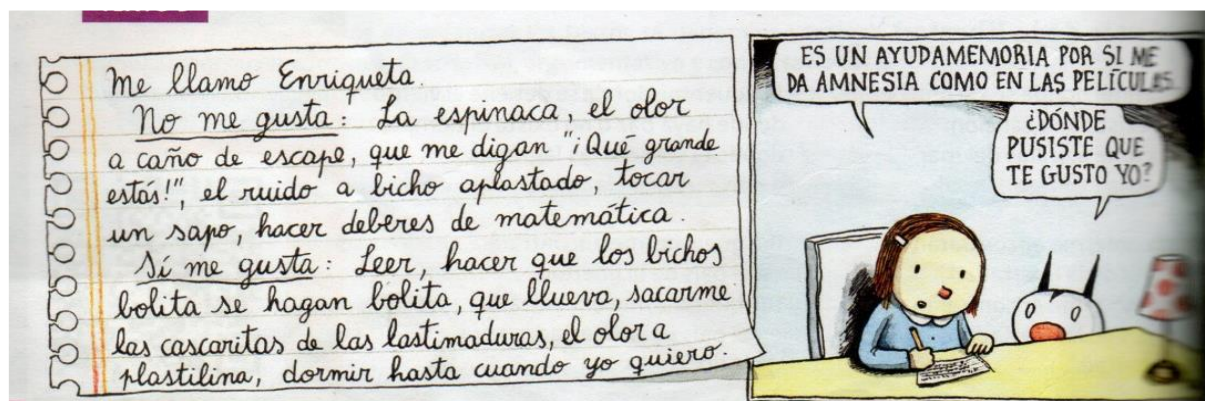 Me llamo Enriqueta.
No me gusta: La espinaca, el olor
a caño de escape, que me digan "¡Qué grande
estás!", el ruido a bicho aplastado, tocar
un sapo, hacer deberes de matemática.
Sí me gusta: Leer, hacer que los bichos
bolita se hagan bolita, que llueva, sacarme
las cascaritas de las lastimaduras, el olor a
plastilina, dormir hasta cuando yo quiero.
ES UN AYUDAMEMORIA POR SI ME
DA AMNESIA COMO EN LAS PELÍCULAS.
¿DÓNDE
PUSISTE QUE
TE GUSTO YO?